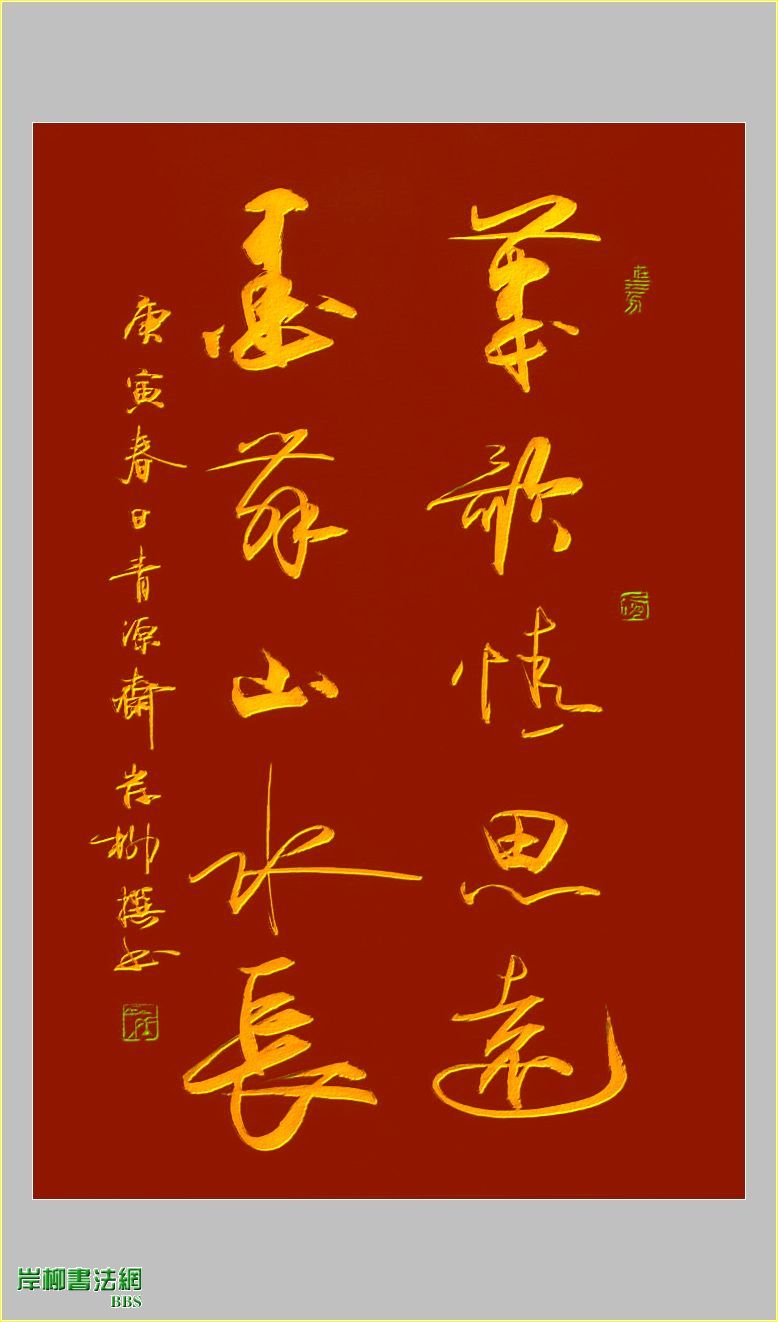 筆歌情思遠
墨舞山水長
庚寅春日青源齋岸柳撰书
岸柳書法網
BBS